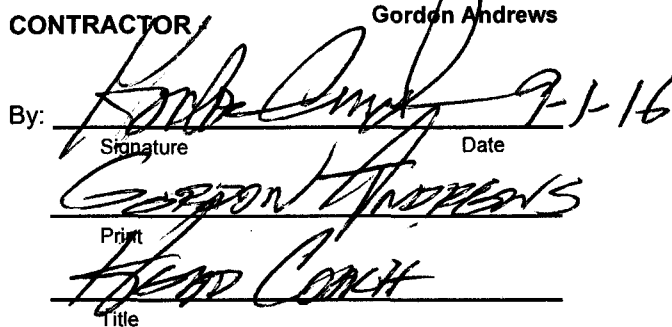 CONTRACTOR Gordon Andrews
By: 9-1-16
Signature Date
GORDON ANDREWS
Print
HEAD COACH
Title